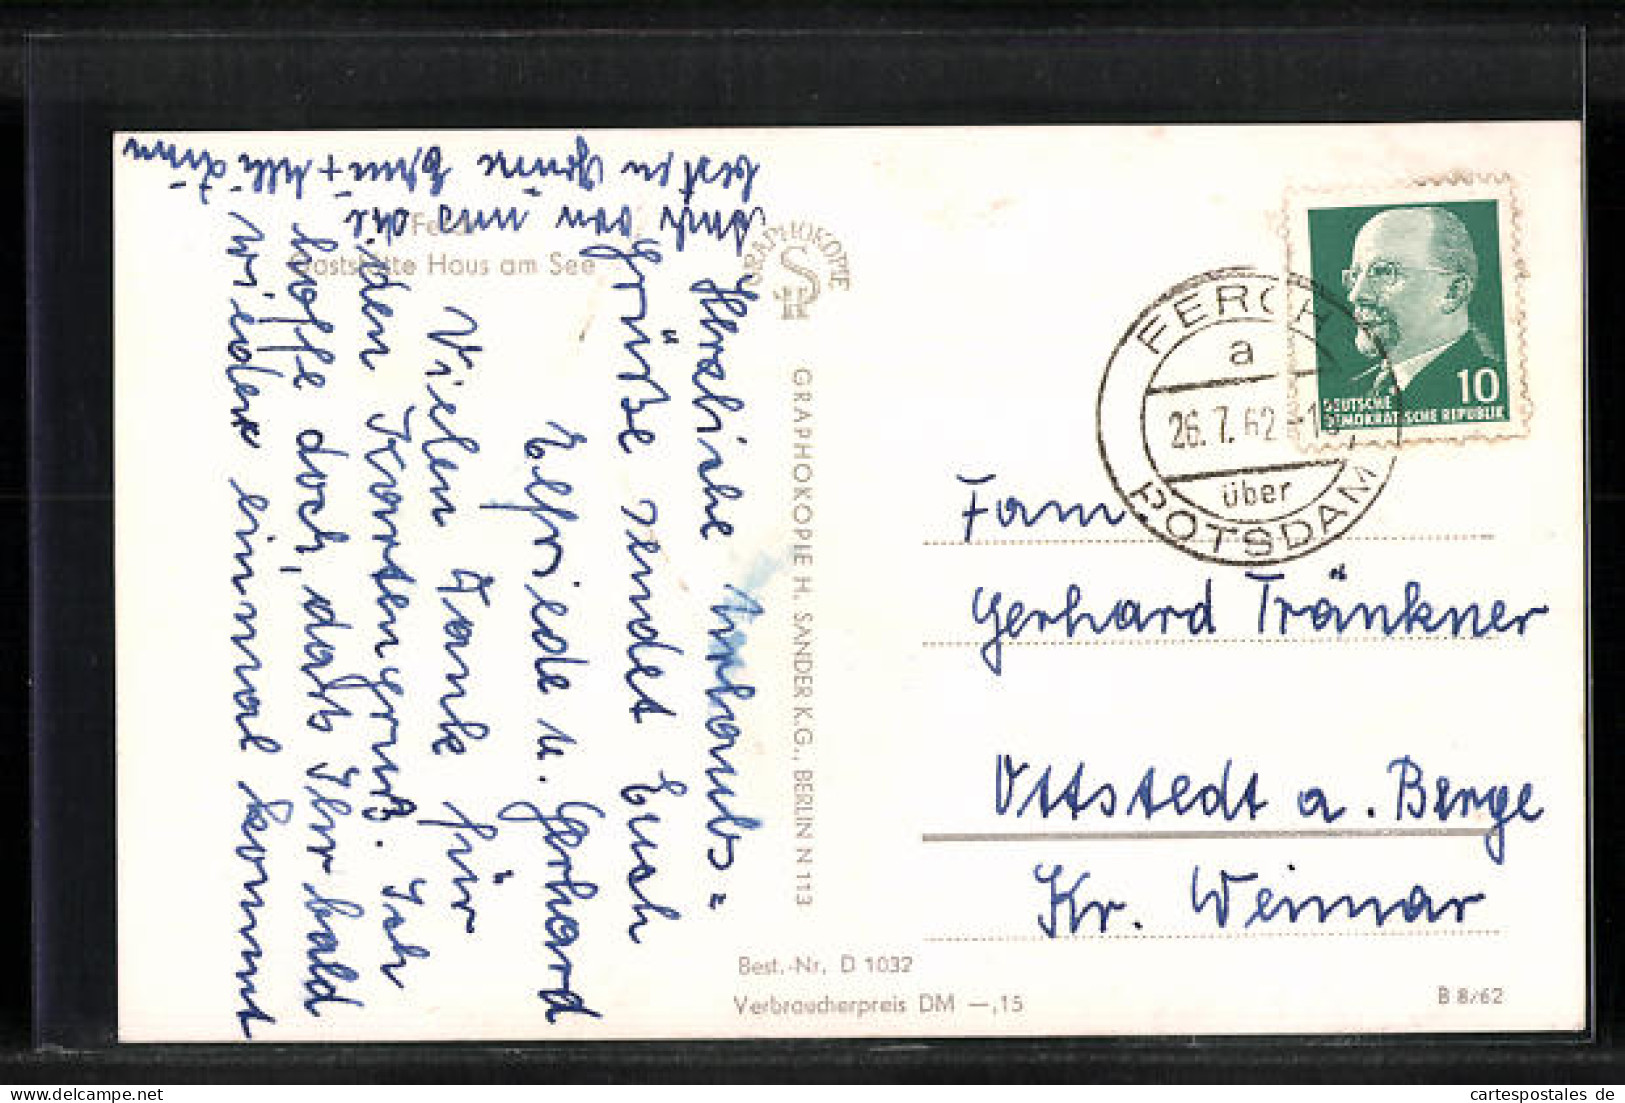 Ferch
Gaststätte Haus am See
GRAPHOKOPIE
H S
GRAPHOKOPIE H. SANDER K.G., BERLIN N 113
Herzliche Urlaubs=
Grüße sendet Euch
Elfriede u. Gerhard
Vielen Dank für
den Kartengruß. Ich
hoffe doch, daß Ihr bald
wieder einmal kommt
Auch von uns die
besten Grüße
FERCH
a
26.7.62
über
POTSDAM
10
DEUTSCHE
DEMOKRATISCHE REPUBLIK
Fam.
Gerhard Tränkner
Ottstedt a. Berge
Kr. Weimar
Best.-Nr. D 1032
Verbraucherpreis DM —,15
B 8/62
cartespostales de